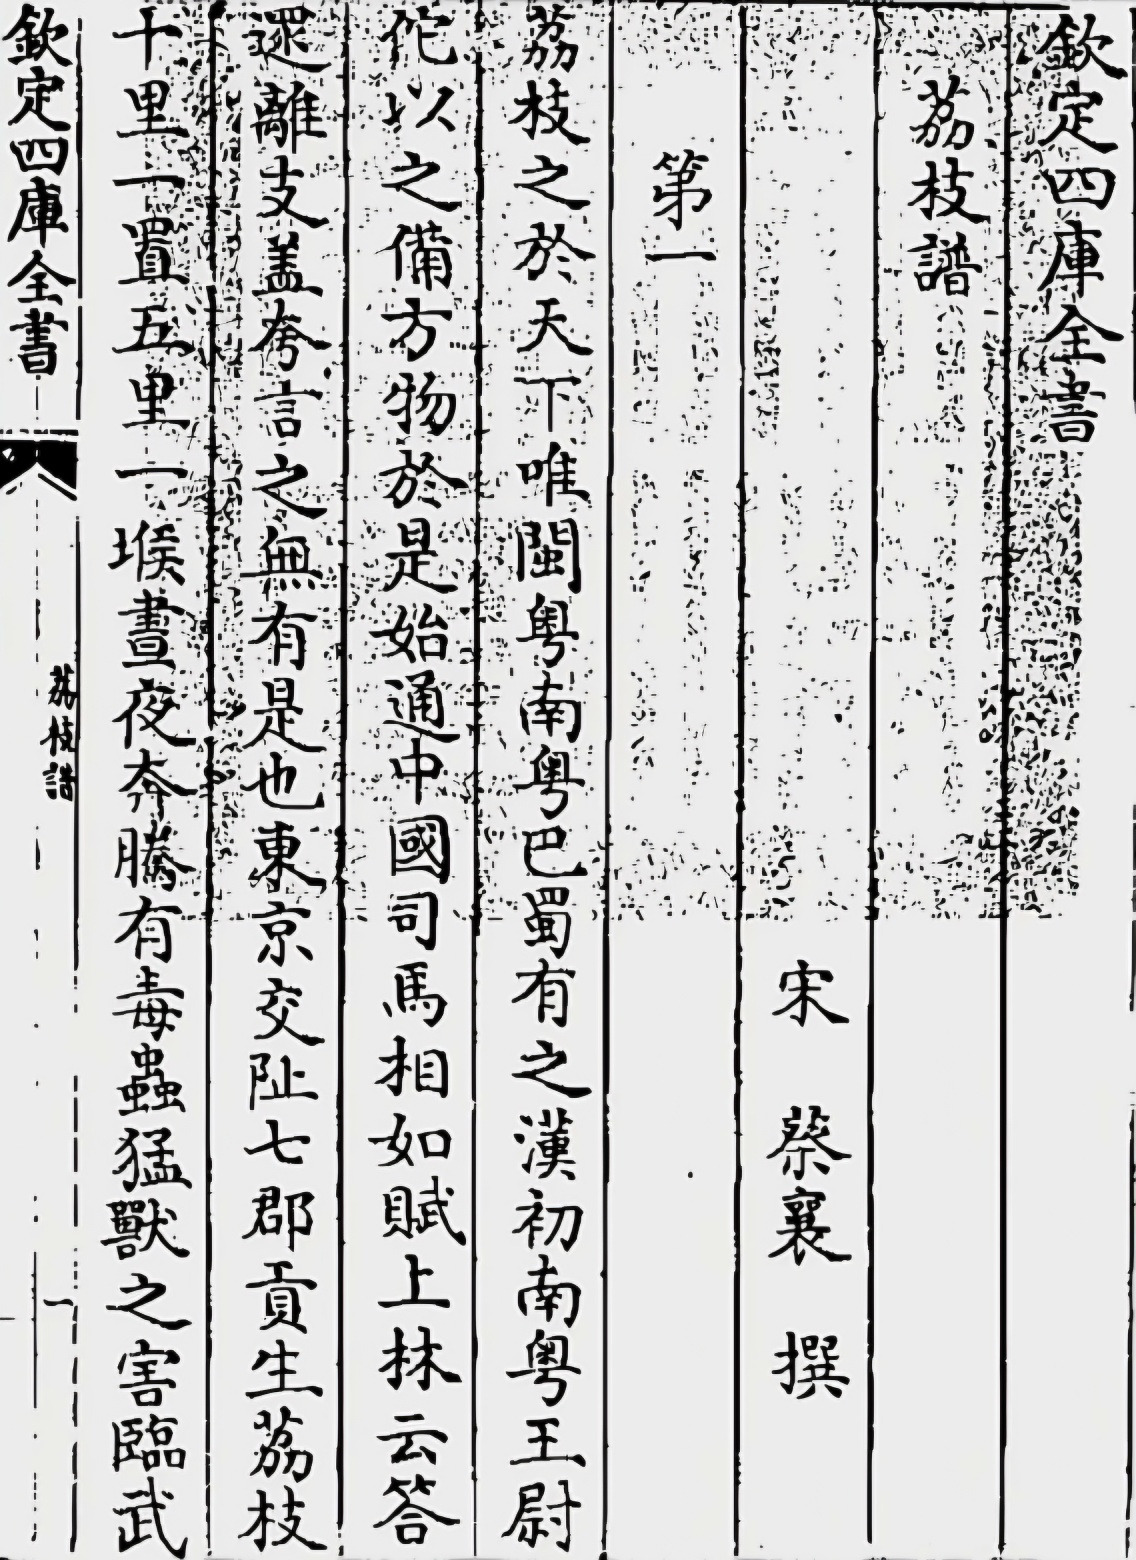 欽定四庫全書
荔枝譜
宋 蔡襄 撰
第一
荔枝之於天下唯閩粤南粤巴蜀有之漢初南粤王尉
佗以之備方物於是始通中國司馬相如賦上林云答
遝離支盖夸言之無有是也東京交阯七郡貢生荔枝
十里一置五里一堠晝夜奔騰有毒蟲猛獸之害臨武
欽定四庫全書
荔枝譜
一